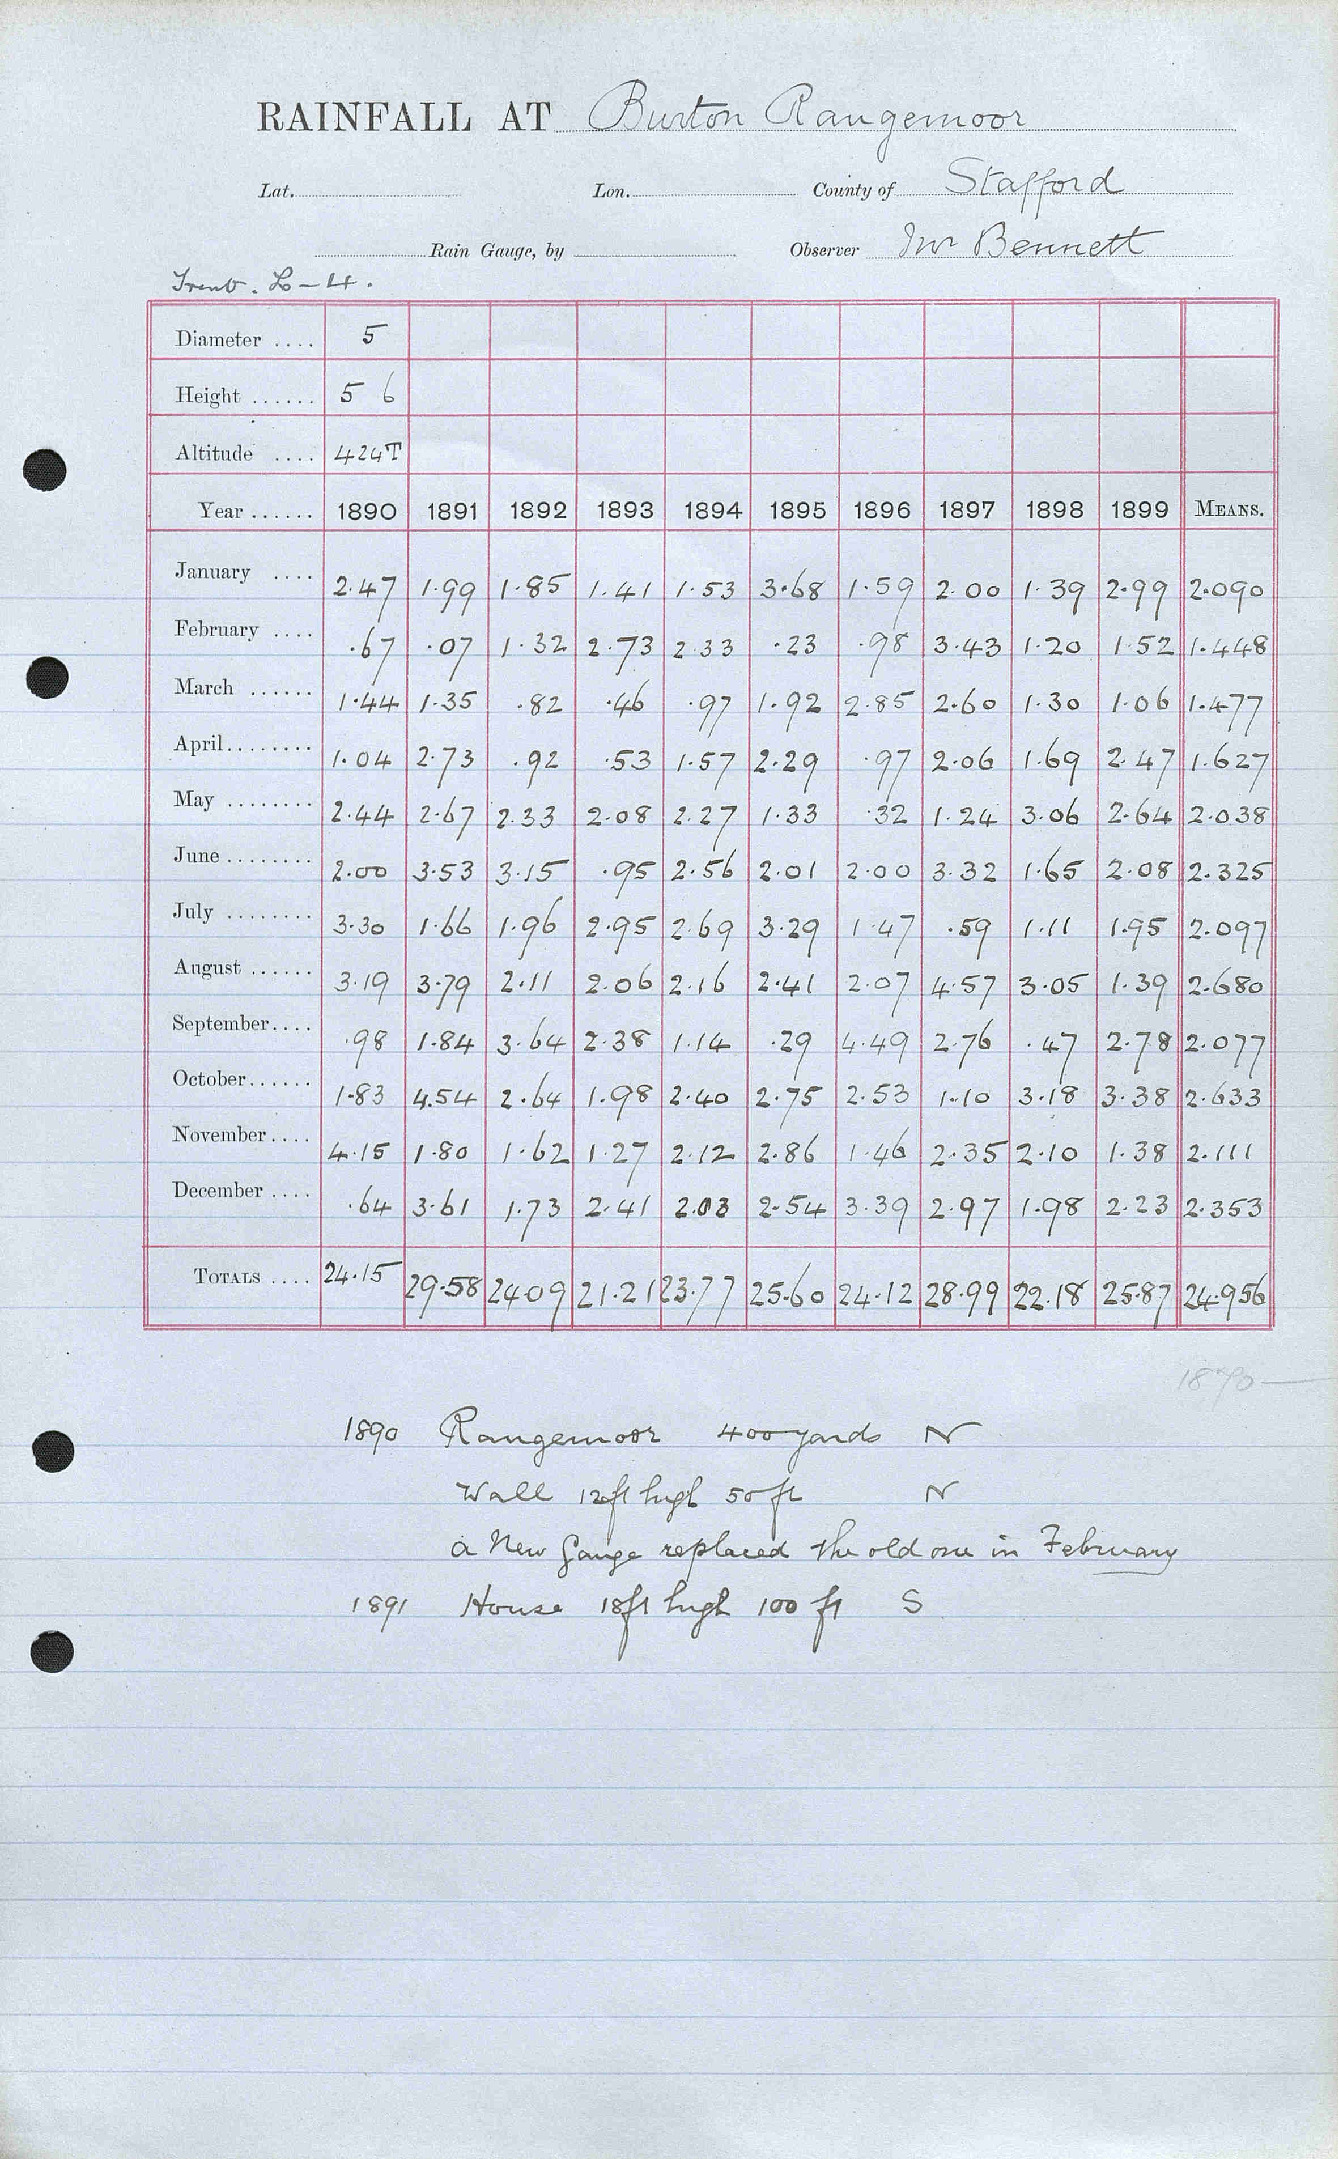 RAINFALL AT Burton Rangemoor
Lat. Lon. County of Stafford
Rain Gauge, by Observer Mr Bennett
Trent. L-4.
Diameter .... 5
Height ...... 5 6
Altitude .... 424T
Year ...... 1890 1891 1892 1893 1894 1895 1896 1897 1898 1899 MEANS.
January .... 2.47 1.99 1.85 1.41 1.53 3.68 1.59 2.00 1.39 2.99 2.090
February .... .67 .07 1.32 2.73 2.33 .23 .98 3.43 1.20 1.52 1.448
March ...... 1.44 1.35 .82 .46 .97 1.92 2.85 2.60 1.30 1.06 1.477
April ........ 1.04 2.73 .92 .53 1.57 2.29 .97 2.06 1.69 2.47 1.627
May ........ 2.44 2.67 2.33 2.08 2.27 1.33 .32 1.24 3.06 2.64 2.038
June ........ 2.00 3.53 3.15 .95 2.56 2.01 2.00 3.32 1.65 2.08 2.325
July ........ 3.30 1.66 1.96 2.95 2.69 3.29 1.47 .59 1.11 1.95 2.097
August ...... 3.19 3.79 2.11 2.06 2.16 2.41 2.07 4.57 3.05 1.39 2.680
September .... .98 1.84 3.64 2.38 1.14 .29 4.49 2.76 .47 2.78 2.077
October ...... 1.83 4.54 2.64 1.98 2.40 2.75 2.53 1.10 3.18 3.38 2.633
November .... 4.15 1.80 1.62 1.27 2.12 2.86 1.46 2.35 2.10 1.38 2.111
December .... .64 3.61 1.73 2.41 2.03 2.54 3.39 2.97 1.98 2.23 2.353
TOTALS .... 24.15 29.58 24.09 21.21 23.77 25.60 24.12 28.99 22.18 25.87 24.956
1890—
1890 Rangemoor 400 yards N
Wall 12ft high 50 ft N
a New Gauge replaced the old one in February
1891 House 18ft high 100 ft S